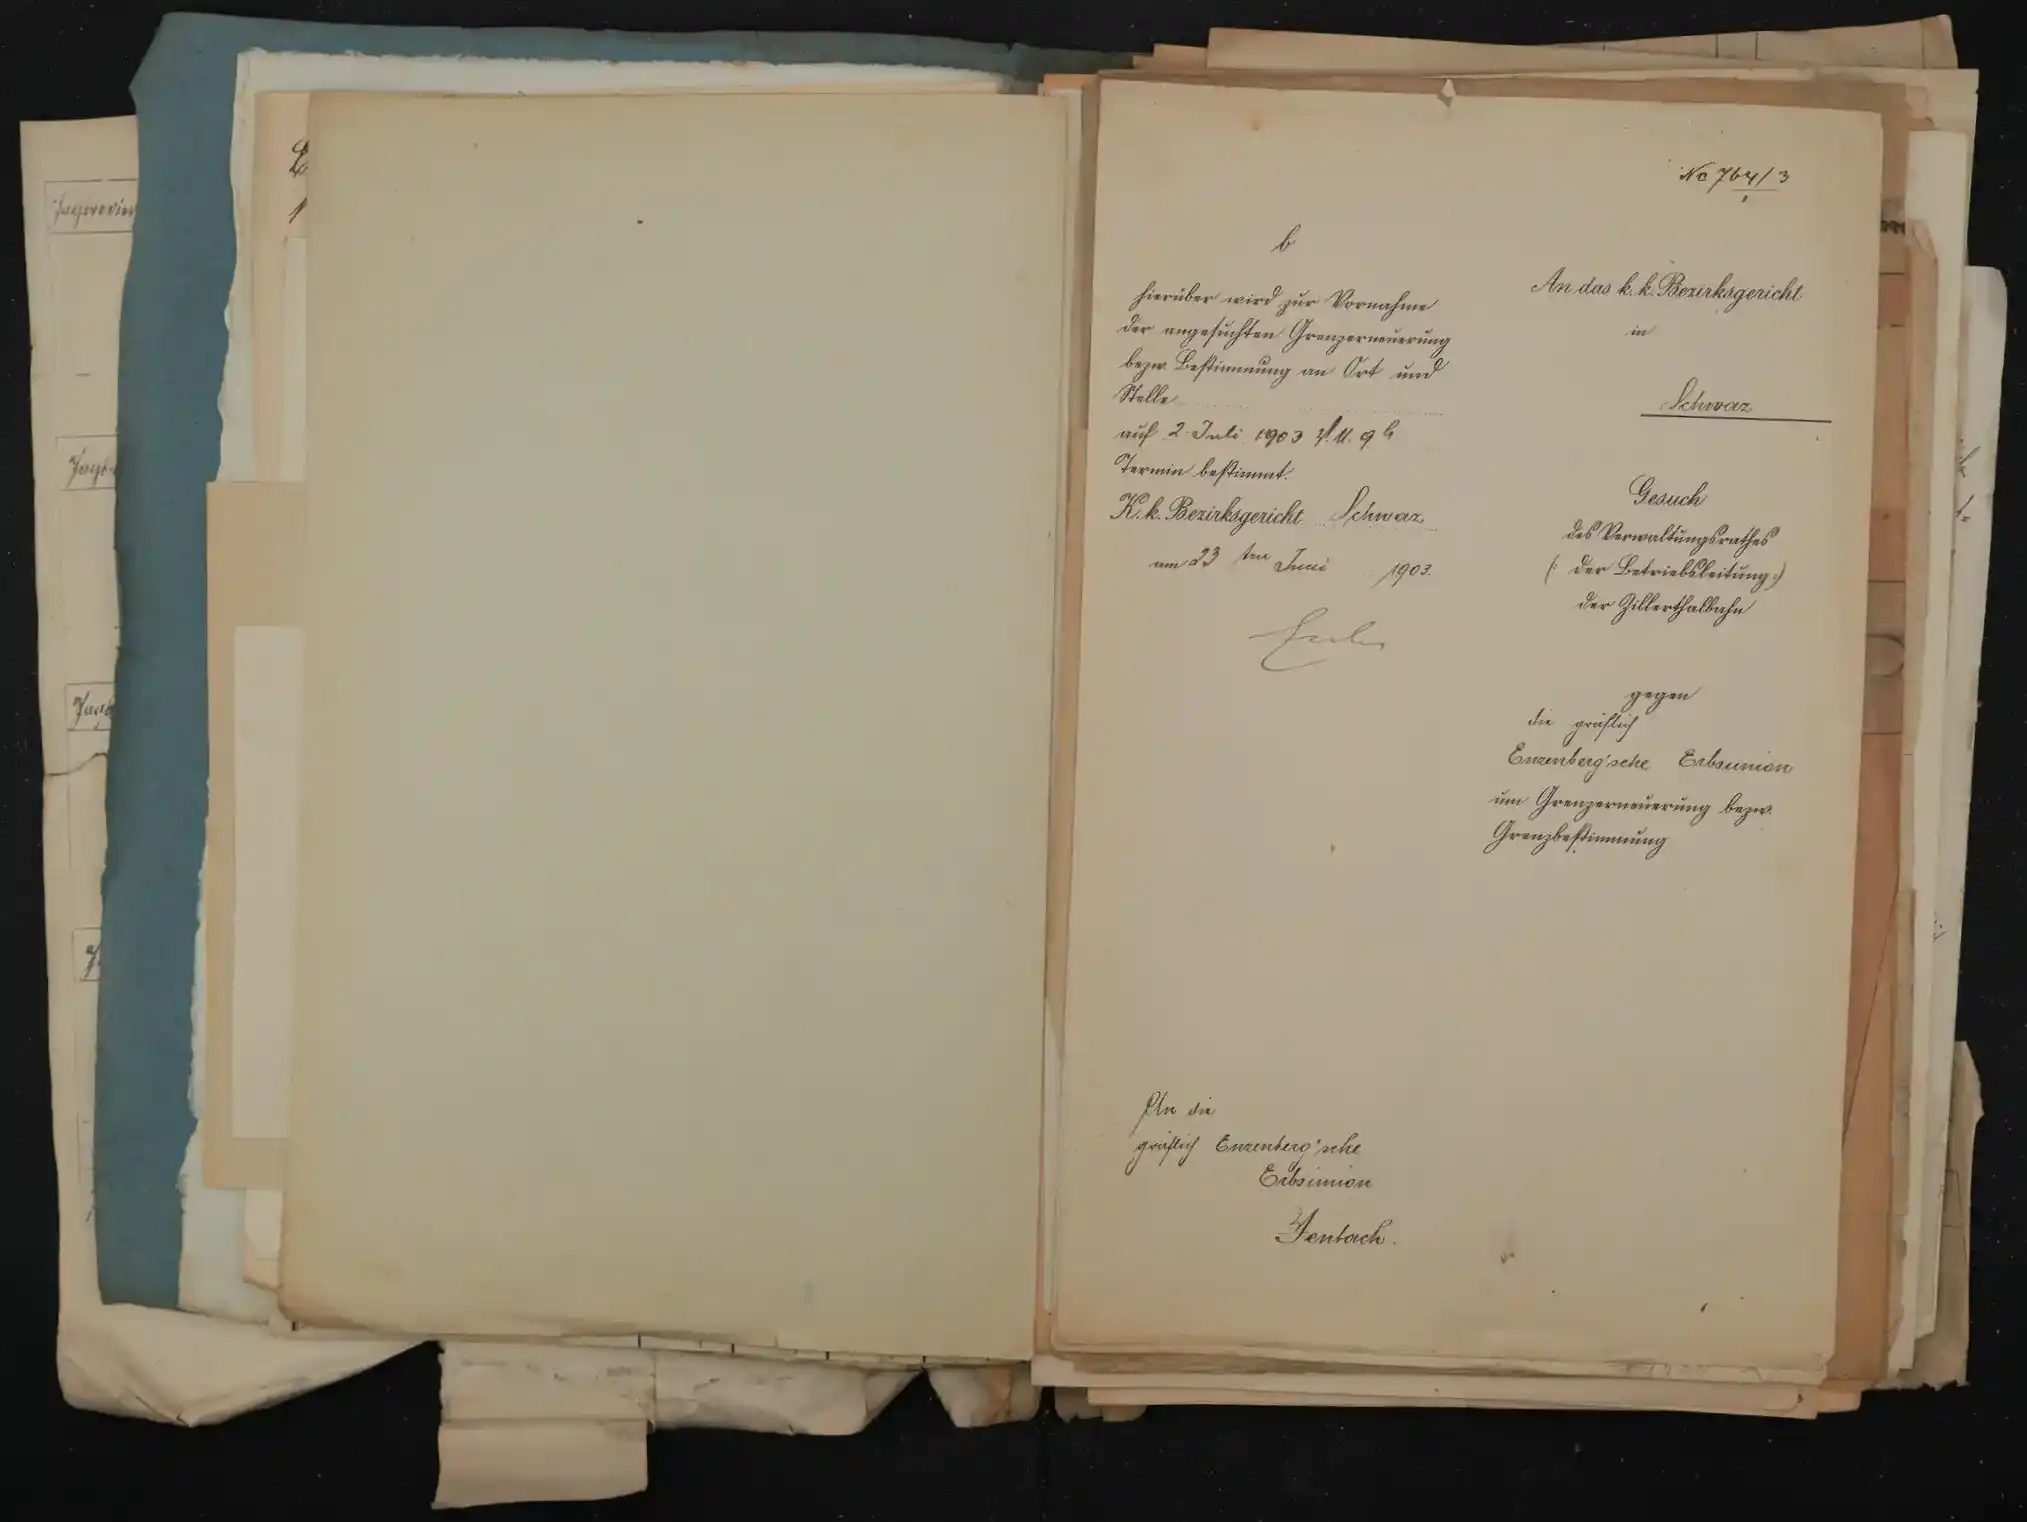 Jagdrevier
No 764/3
1
b
hierüber wird zur Vornahme
der angesuchten Grenzerneuerung
bezw. Bestimmung an Ort und
Stelle
auf 2. Juli 1903 V. M. 9 h
Termin bestimmt.
K. k. Bezirksgericht Schwaz
am 23 ten Juni 1903.
An die
gräflich Enzenberg'sche
Erbsunion
Jenbach.
An das k. k. Bezirksgericht
in
Schwaz
Gesuch
des Verwaltungsrathes
(: der Betriebsleitung :)
der Zillerthalbahn
gegen
die gräflich
Enzenberg'sche Erbsunion
um Grenzerneuerung bezw.
Grenzbestimmung